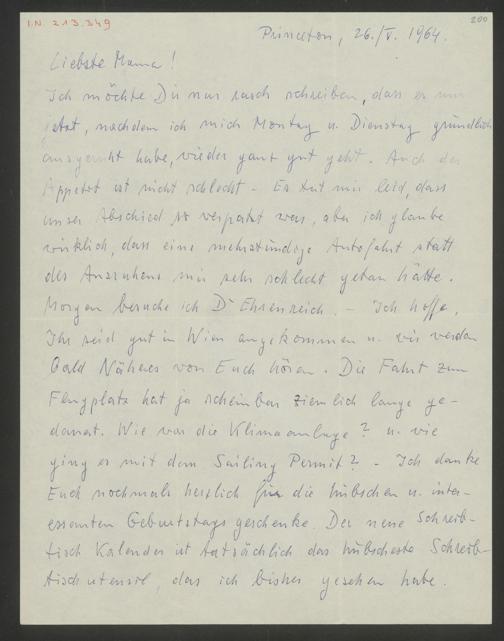 I.N. 213.349
200
Princeton, 26./V. 1964.
Liebste Mama!
Ich möchte Dir nur rasch schreiben, dass es mir
jetzt, nachdem ich mich Montag u. Dienstag gründlich
ausgeruht habe, wieder ganz gut geht. Auch der
Appetit ist nicht schlecht. – Es tut mir leid, dass
unser Abschied so verpatzt war, aber ich glaube
wirklich, dass eine mehrstündige Autofahrt statt
des Ausruhens mir sehr schlecht getan hätte.
Morgen besuche ich Dr Ehrenreich. – Ich hoffe,
Ihr seid gut in Wien angekommen u. wir werden
bald Näheres von Euch hören. Die Fahrt zum
Flugplatz hat ja scheinbar ziemlich lange ge-
dauert. Wie war die Klimaanlage? u. wie
ging es mit dem Sailing Permit? – Ich danke
Euch nochmals herzlich für die hübschen u. inter-
essanten Geburtstagsgeschenke. Der neue Schreib-
tisch Kalender ist tatsächlich das hübscheste Schreib-
tischutensil, das ich bisher gesehen habe.